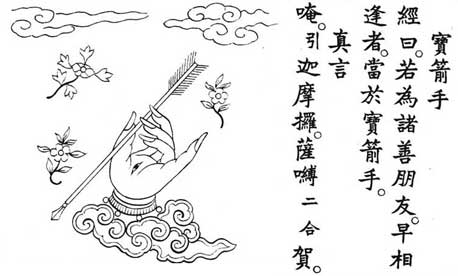 寶箭手
經曰。若為諸善朋友。早相
逢者。當於寶箭手。
真言
唵。引迦摩攞。薩嚩二合賀。